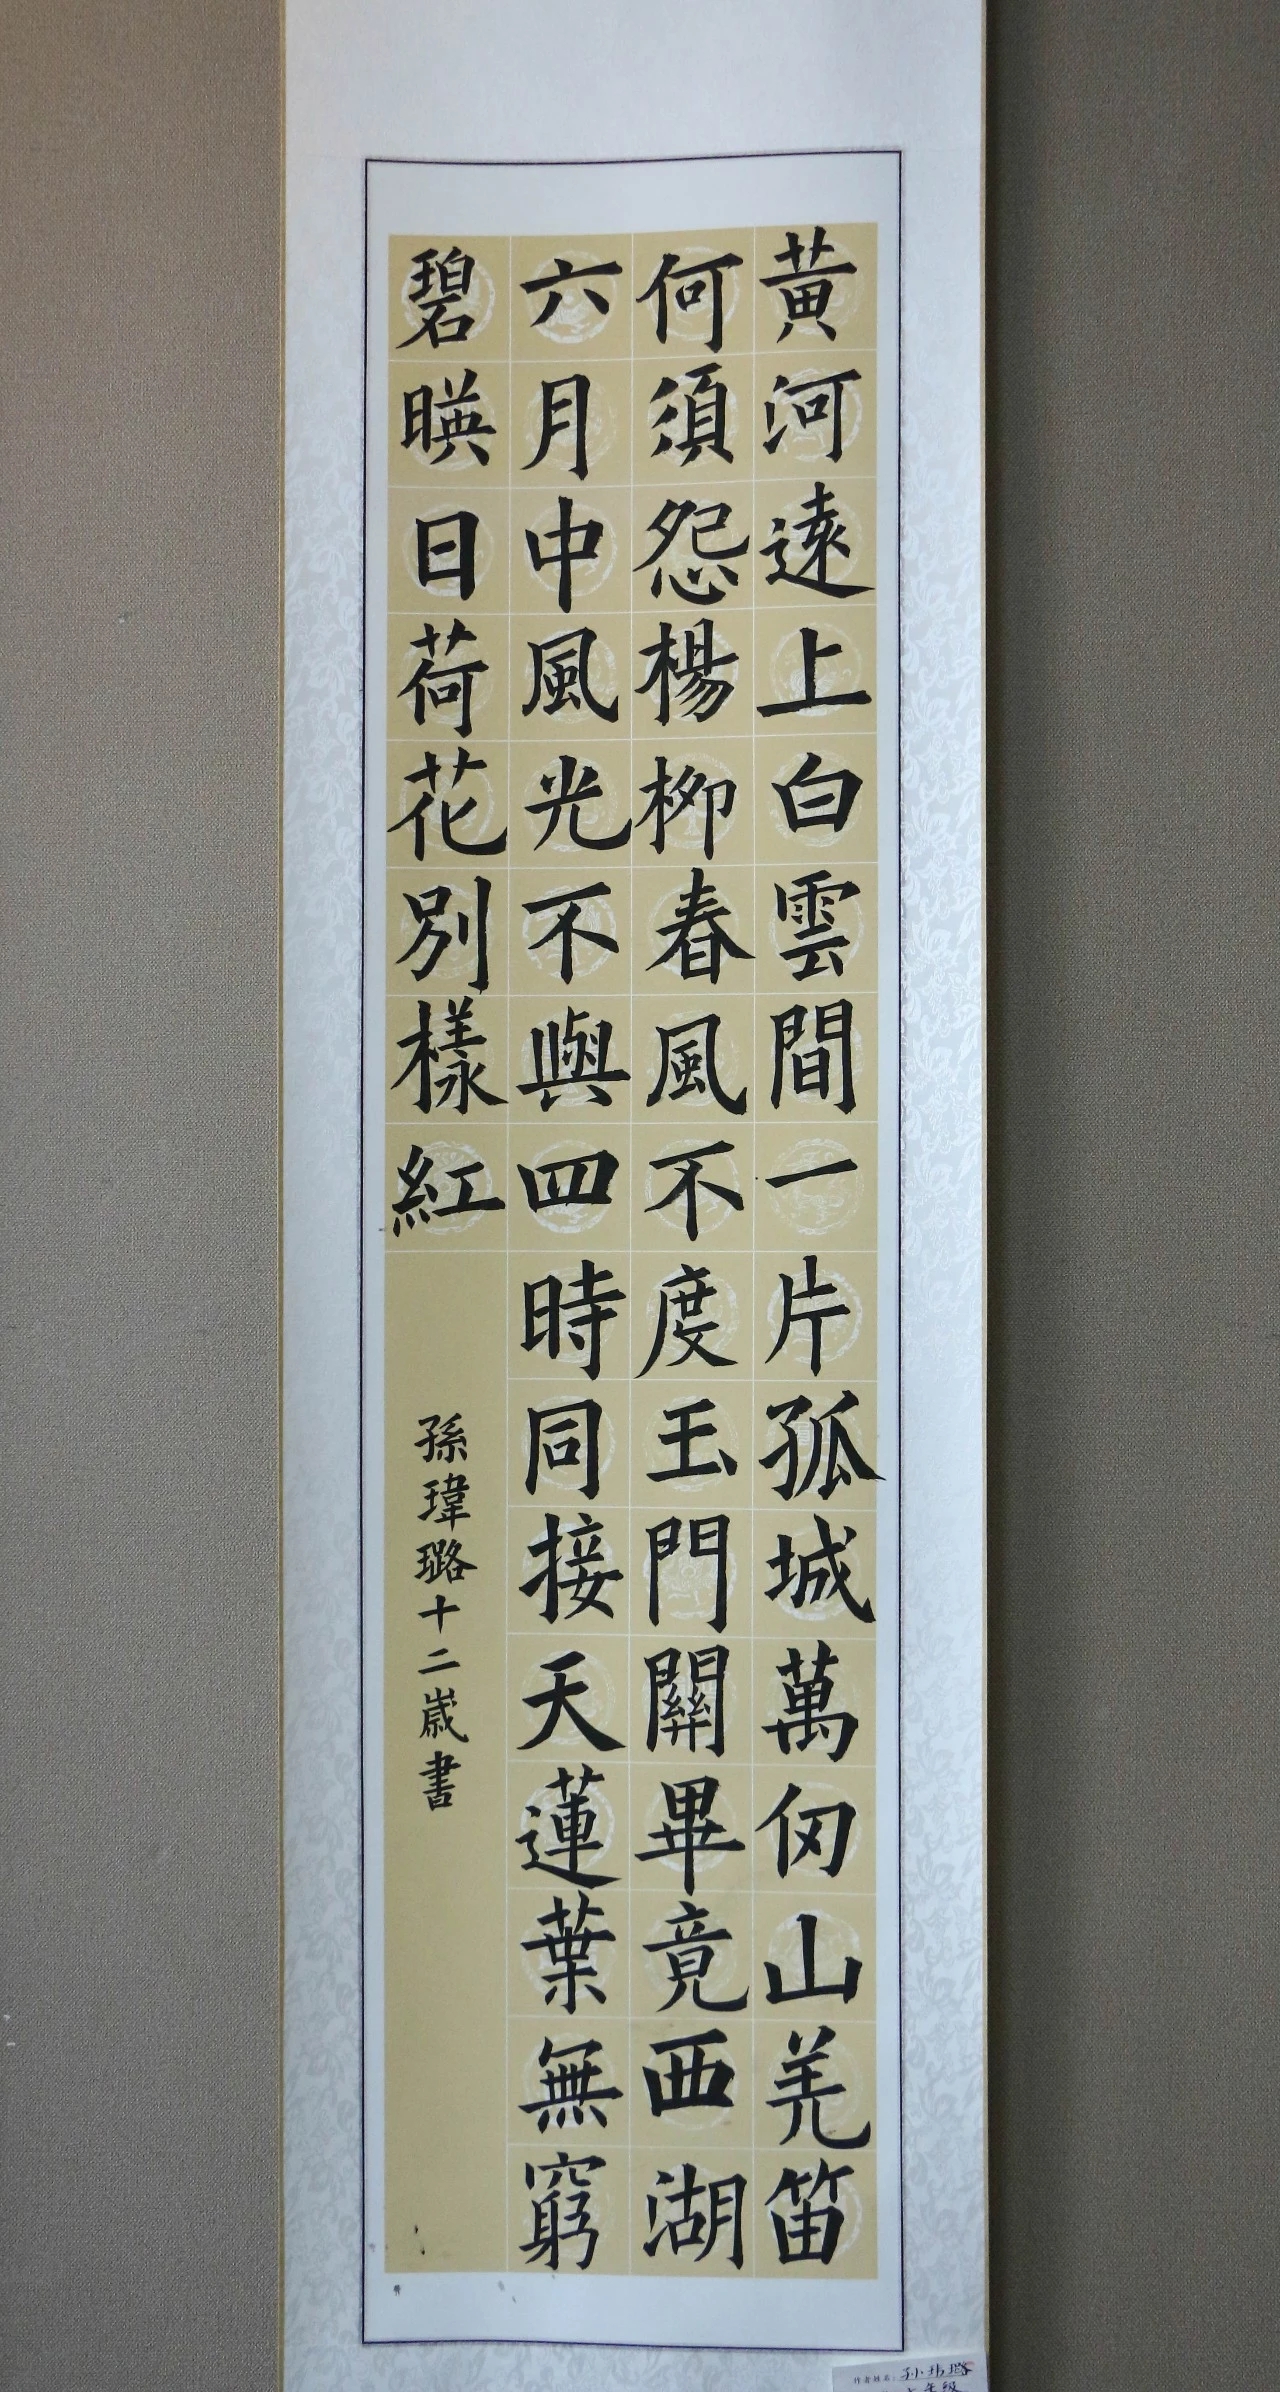 黄河遠上白雲間一片孤城萬仞山羌笛
何須怨楊柳春風不度玉門關畢竟西湖
六月中風光不與四時同接天蓮葉無窮
碧暎日荷花別樣紅
孫瑋璐十二歲書
作者姓名：孙玮璐